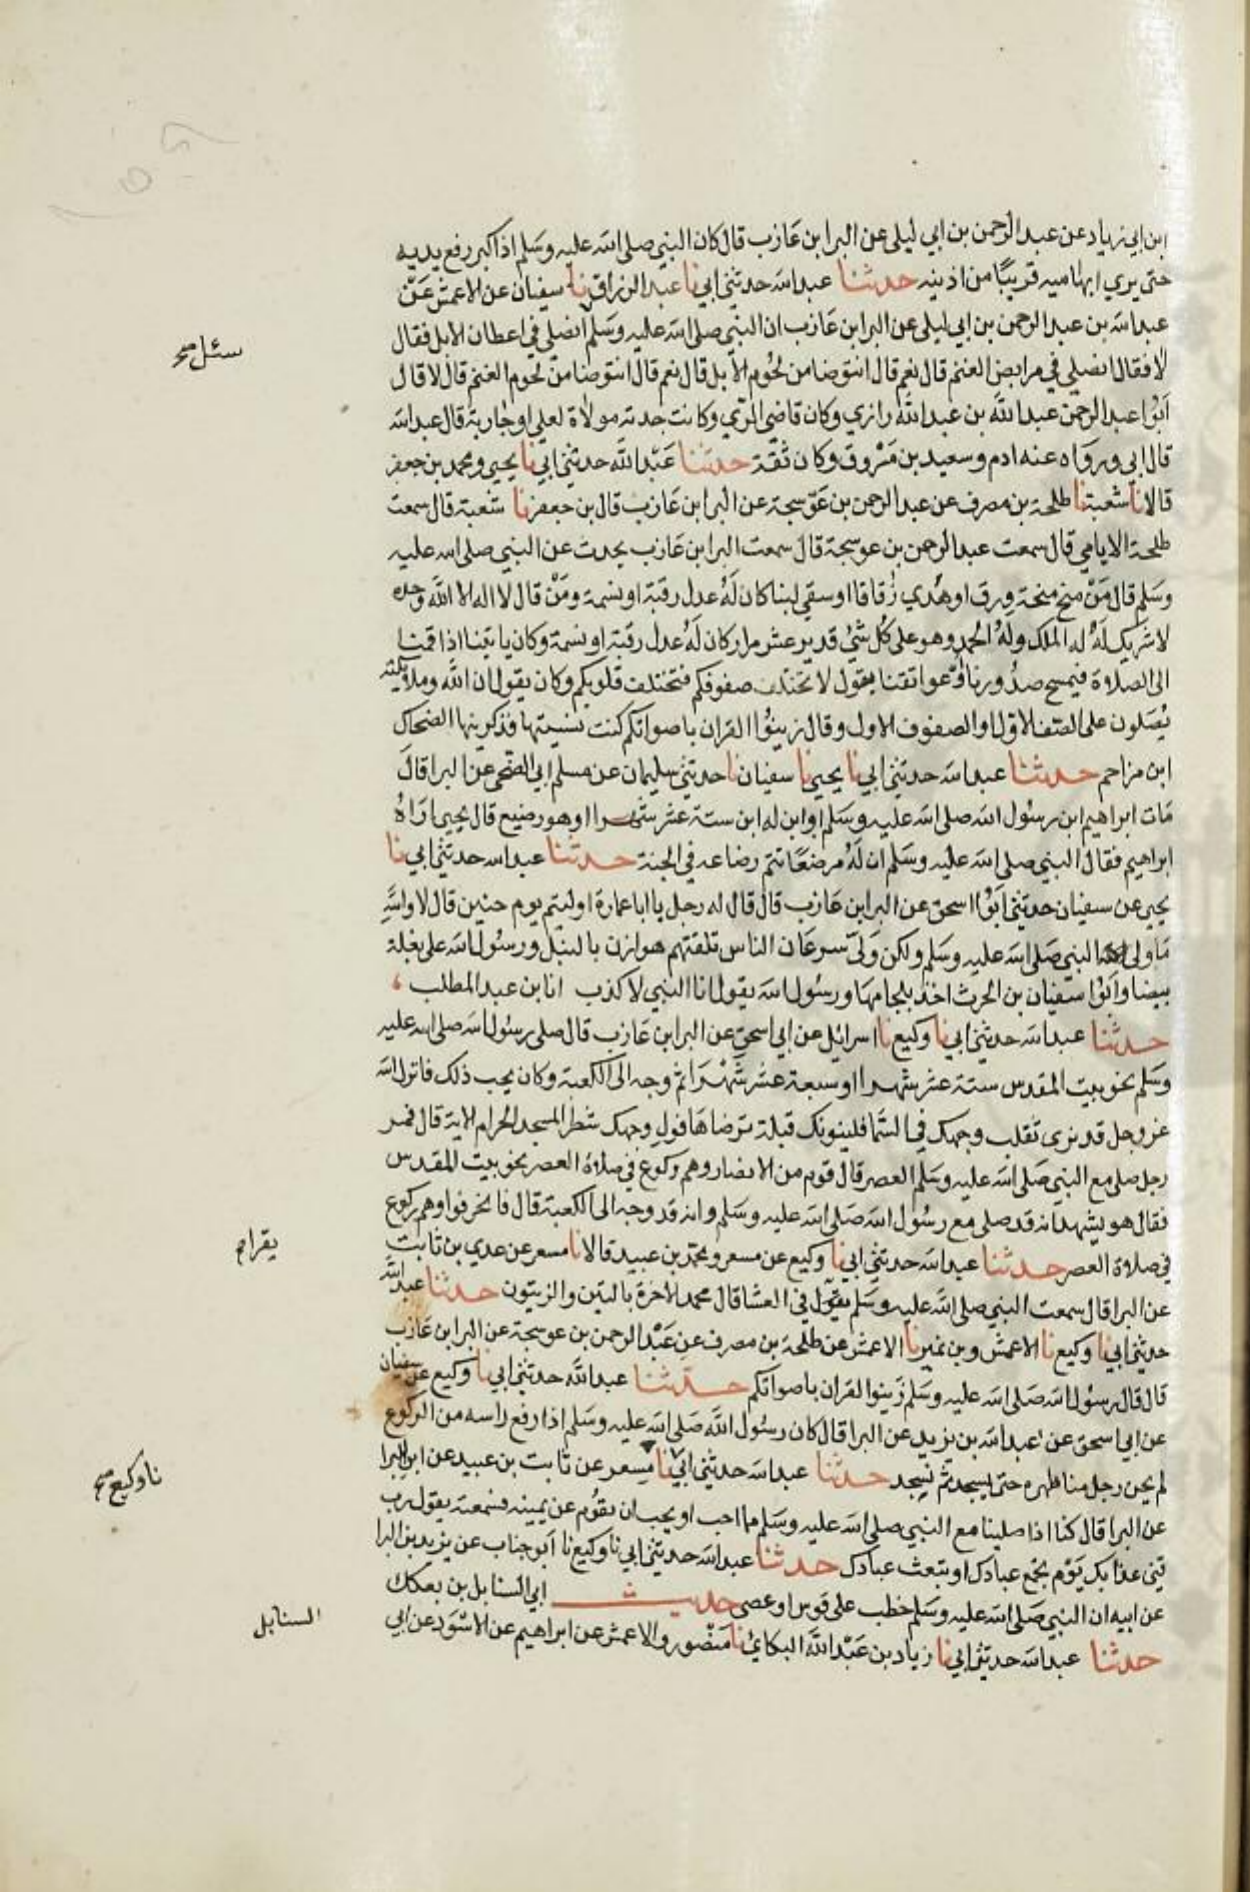 ابن ابي زياد عن عبد الرحمن بن ابي ليلى عن البرا بن عازب قال كان النبي صلى الله عليه وسلم اذا كبر رفع يديه
حتى يري ابهاميه قريبًا من اذنيه حدثنا عبد الله حدثني ابي نا عبد الرزاق نا سفيان عن الاعمش عن
عبد الله بن عبد الرحمن بن ابي ليلى عن البرا بن عازب ان النبي صلى الله عليه وسلم انصلي في اعطان الابل فقال
سئل صح
لا فقال انصلي في مرابض الغنم قال نعم قال انتوضا من لحوم الابل قال نعم قال انتوضا من لحوم الغنم قال لا قال
ابو عبد الرحمن عبد الله بن عبد الله رازي وكان قاضي الري وكانت جدته مولاة لعلي او جارية قال عبد الله
قال ابي ورواه عنه ادم وسعيد بن مسروق وكان ثقة حدثنا عبد الله حدثني ابي نا يحيى ومحمد بن جعفر
قالا نا شعبة نا طلحة بن مصرف عن عبد الرحمن بن عوسجة عن البرا بن عازب قال بن جعفر نا شعبة قال سمعت
طلحة الايامي قال سمعت عبد الرحمن بن عوسجة قال سمعت البرا بن عازب يحدث عن النبي صلى الله عليه
وسلم قال من منح منحة ورق او هدي زقاقا او سقي لبنا كان له عدل رقبة او نسمة ومن قال لا اله الا الله وحده
لا شريك له له الملك وله الحمد وهو على كل شي قدير عشر مرار كان له عدل رقبة او نسمة وكان ياتينا اذا قمنا
الى الصلاة فيمسح صدورنا او عواتقنا يقول لا تختلف صفوفكم فتختلف قلوبكم وكان يقول ان الله وملائكته
يصلون على الصف الاول او الصفوف الاول وقال زينوا القران باصواتكم كنت نسيتها فذكرنيها الضحاك
ابن مزاحم حدثنا عبد الله حدثني ابي نا يحيى نا سفيان نا حدثني سليمان عن مسلم ابي الضحى عن البرا قال
مات ابراهيم ابن رسول الله صلى الله عليه وسلم او ابن له ابن ستة عشر شهرا او هو رضيع قال يحيى اراه
ابراهيم فقال النبي صلى الله عليه وسلم ان له مرضعًا تتم رضاعه في الجنة حدثنا عبد الله حدثني ابي نا
يحيى عن سفيان حدثني ابوا اسحق عن البرا بن عازب قال قال له رجل يا ابا عمارة اوليتم يوم حنين قال لا والله
ما ولى النبي صلى الله عليه وسلم ولكن ولى سرعان الناس تلقتهم هوازن بالنبل ورسول الله على بغلة
بيضا وابوا سفيان بن الحرث اخذ بلجامها ورسول الله يقول انا النبي لا كذب انا بن عبد المطلب
حدثنا عبد الله حدثني ابي نا وكيع نا اسرائل عن ابي اسحق عن البرا بن عازب قال صلى رسول الله صلى الله عليه
وسلم نحو بيت المقدس ستة عشر شهرا او سبعة عشر شهرا ثم وجه الى الكعبة وكان يحب ذلك فانزل الله
عز وجل قد نرى تقلب وجهك في السما فلنولينك قبلة ترضاها فول وجهك شطر المسجد الحرام الاية قال فمر
رجل صلى مع النبي صلى الله عليه وسلم العصر قال قوم من الانصار وهم ركوع في صلاة العصر نحو بيت المقدس
فقال هو يشهد انه قد صلى مع رسول الله صلى الله عليه وسلم وانه قد وجه الى الكعبة قال فانحرفوا وهم ركوع
في صلاة العصر حدثنا عبد الله حدثني ابي نا وكيع عن مسعر ومحمد بن عبيد قالا نا مسعر عن عدي بن ثابت
يقرا صح
عن البرا قال سمعت النبي صلى الله عليه وسلم يقول في العشا قال محمد الاخرة بالتين والزيتون حدثنا عبد الله
حدثني ابي نا وكيع نا الاعمش وبن نمير نا الاعمش عن طلحة بن مصرف عن عبد الرحمن بن عوسجة عن البرا بن عازب
قال قال رسول الله صلى الله عليه وسلم زينوا القران باصواتكم حدثنا عبد الله حدثني ابي نا وكيع عن سفيان
عن ابي اسحق عن عبد الله بن يزيد عن البرا قال كان رسول الله صلى الله عليه وسلم اذا رفع راسه من الركوع
لم يحن رجل منا ظهره حتى يسجد ثم نسجد حدثنا عبد الله حدثني ابي نا مسعر عن ثابت بن عبيد عن ابن البرا
نا وكيع صح
عن البرا قال كنا اذا صلينا مع النبي صلى الله عليه وسلم مما احب او يحب ان نقوم عن يمينه فسمعته يقول رب
قني عذابك يوم تجمع عبادك او تبعث عبادك حدثنا عبد الله حدثني ابي نا وكيع نا ابو جناب عن يزيد بن البرا
عن ابيه ان النبي صلى الله عليه وسلم خطب على قوس او عصى حديث ابي السنابل بن بعكك
السنابل
حدثنا عبد الله حدثني ابي نا زياد بن عبد الله البكائ نا منصور والاعمش عن ابراهيم عن الاسود عن ابي